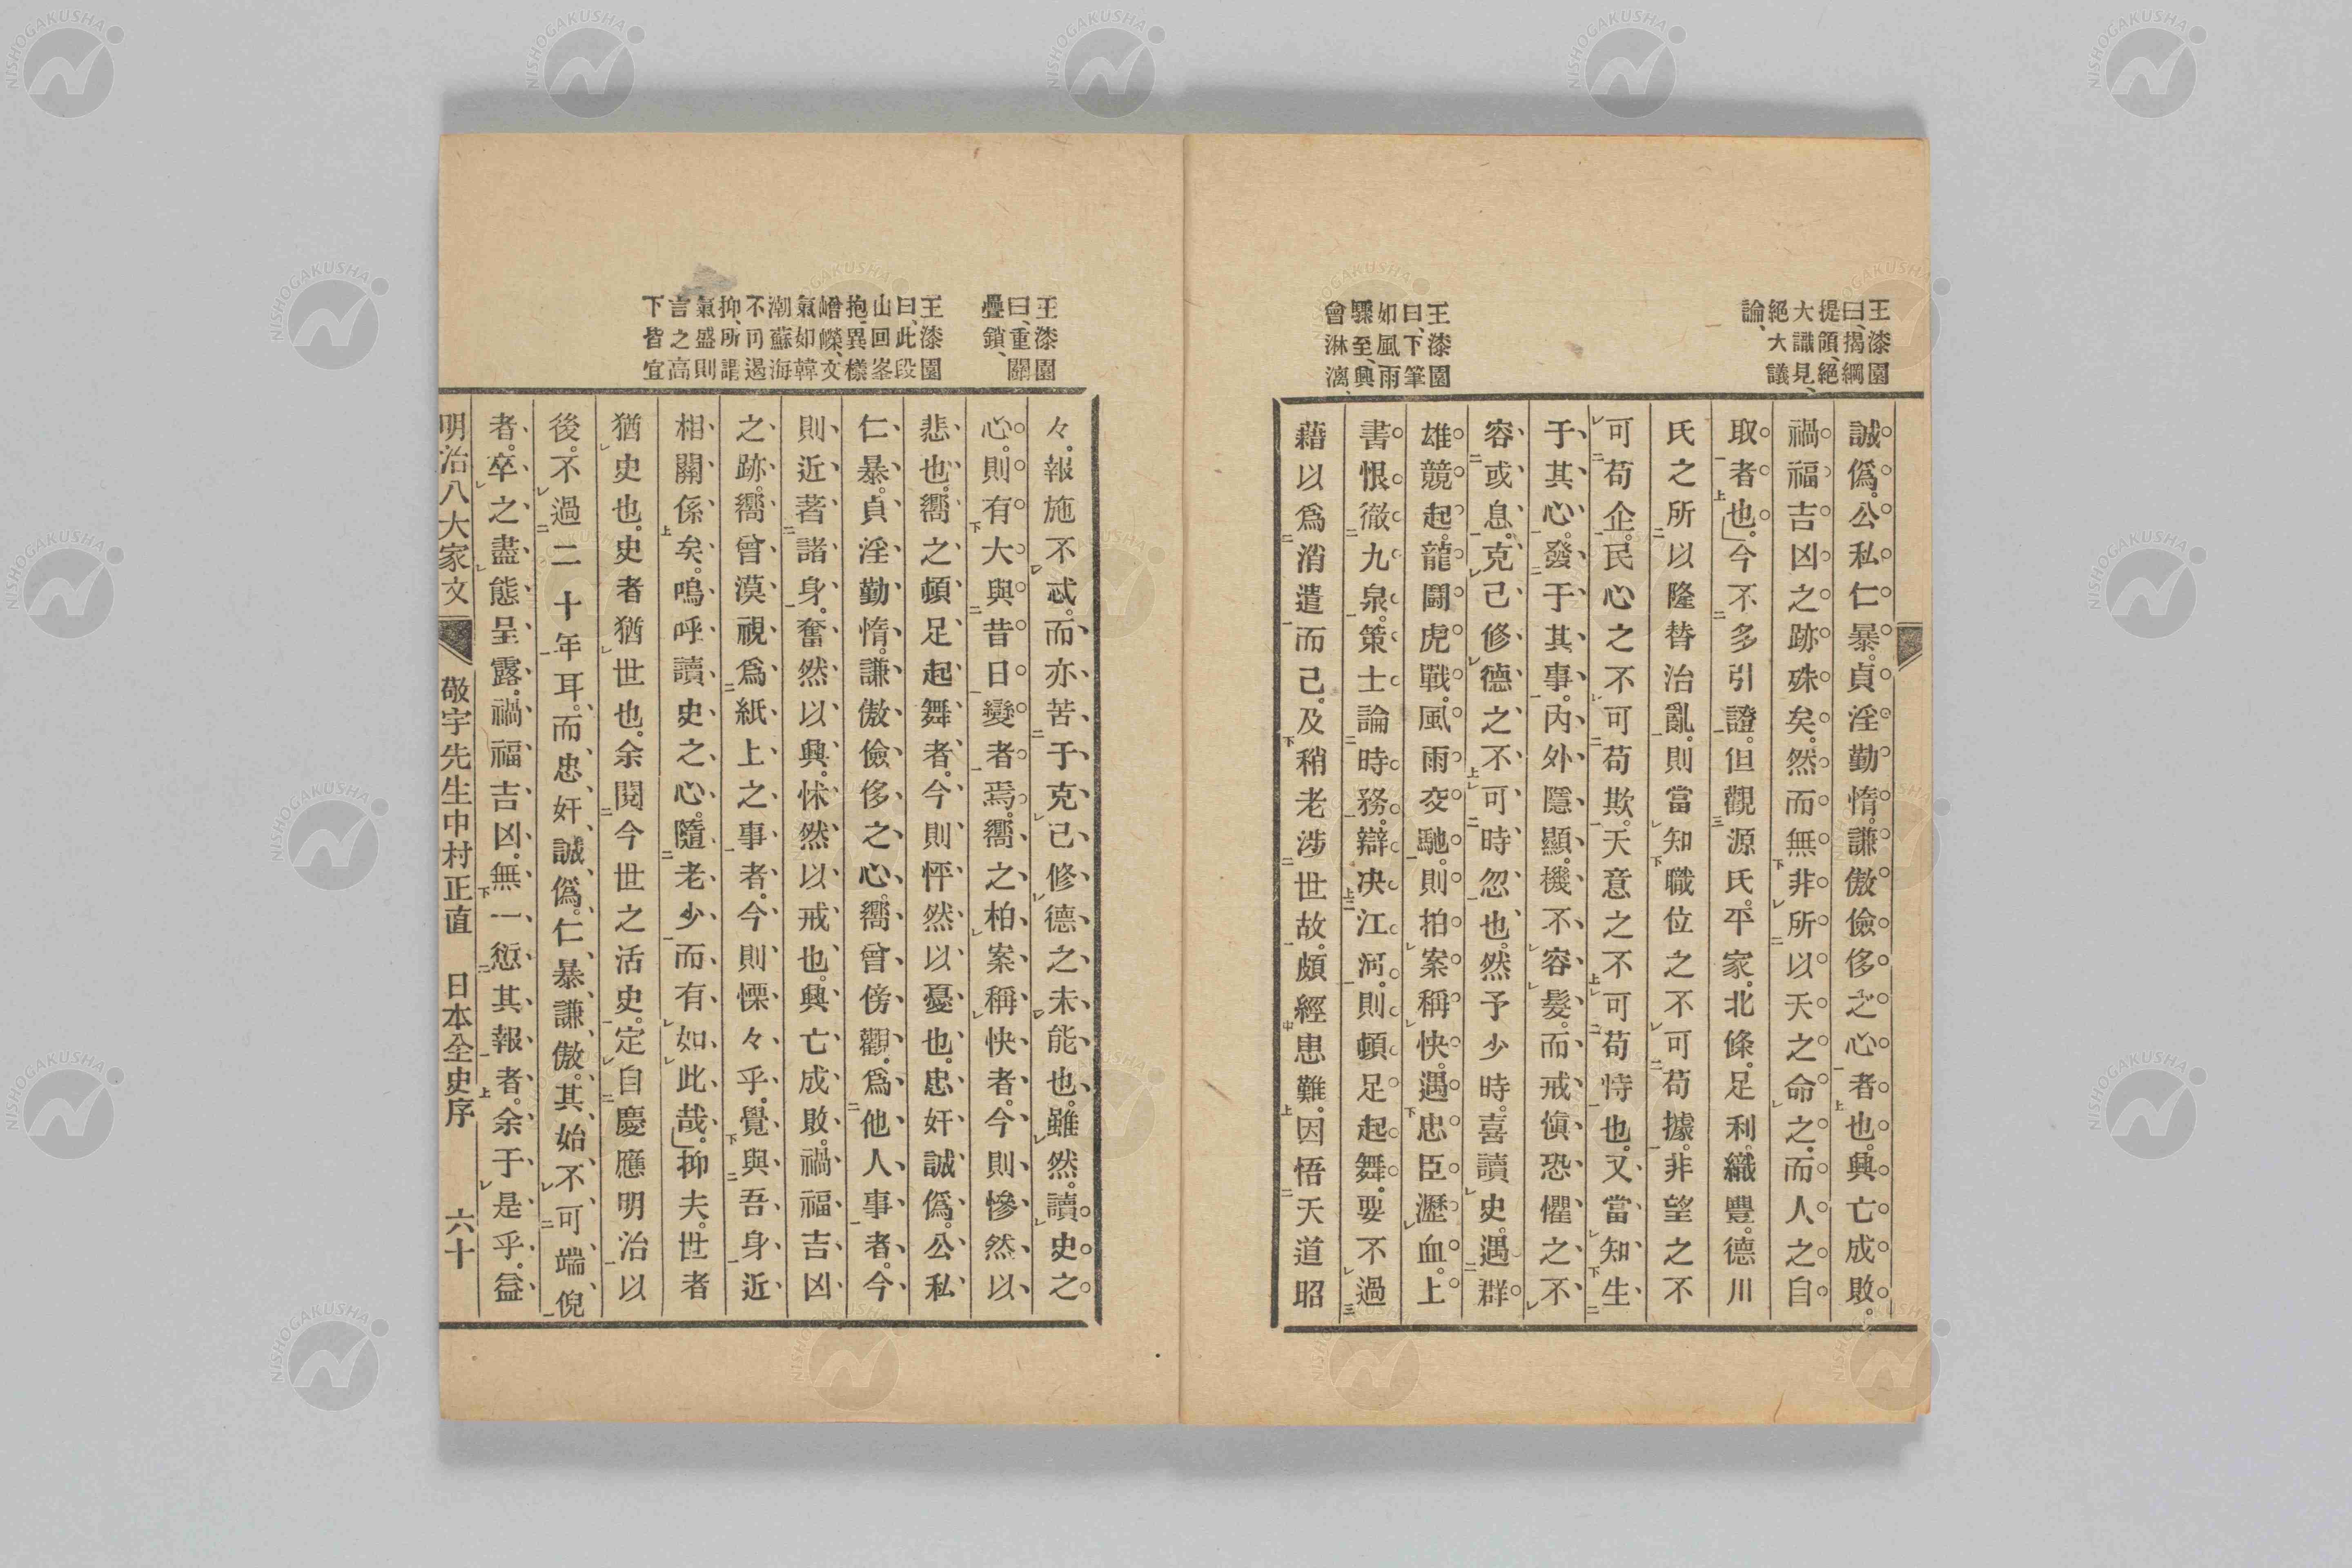 王漆園
曰、揭綱
提領、絕
大識見、
絕大議
論、
王漆園
曰、下筆
如風雨
驟至、興
會淋漓、
誠僞。公私仁暴。貞淫勤惰。謙傲儉侈之心者也。興亡成敗。
禍福吉凶之跡殊矣。然而無非所以天之命之。而人之自
取者也。」今不多引證。但觀源氏。平家。北條。足利。織豐。德川
氏之所以隆替治亂。則當知職位之不可苟據。非望之不
可苟企。民心之不可苟欺。天意之不可苟恃也。又當知生
于其心。發于其事。內外隱顯。機不容髮。而戒愼恐懼之不
容或息。克己修德之不可時忽也。然予少時。喜讀史。遇群
雄競起。龍鬪虎戰。風雨交馳。則拍案稱快。遇忠臣瀝血。上
書恨徹九泉。策士論時務。辯决江河。則頓足起舞。要不過
藉以爲消遣而己。及稍老涉世故。頗經患難。因悟天道昭
王漆園
曰、重關
疊鎖、
王漆園
曰、此段
山回峯
抱、異樣
嶒嶸、文
氣如韓
潮蘇海
不可遏
抑、所謂
氣盛則
言之高
下皆宜
々。報施不忒。而亦苦于克己修德之未能也。雖然。讀史之
心。則有大與昔日變者焉。嚮之柏案稱快者。今則慘然以
悲也。嚮之頓足起舞者。今則怦然以憂也。忠奸誠僞。公私
仁暴。貞淫勤惰。謙傲儉侈之心。嚮曾傍觀。爲他人事者。今
則近著諸身。奮然以興。怵然以戒也。興亡成敗。禍福吉凶
之跡。嚮曾漠視。爲紙上之事者。今則慄々乎。覺與吾身近
相關係矣。嗚呼讀史之心。隨老少而有如此哉。」抑夫。世者
猶史也。史者猶世也。余閱今世之活史。定自慶應明治以
後。不過二十年耳。而忠奸誠僞。仁暴謙傲。其始不可端倪
者。卒之盡態呈露。禍福吉凶。無一愆其報者。余于是乎。益
明治八大家文 敬宇先生中村正直 日本全史序 六十